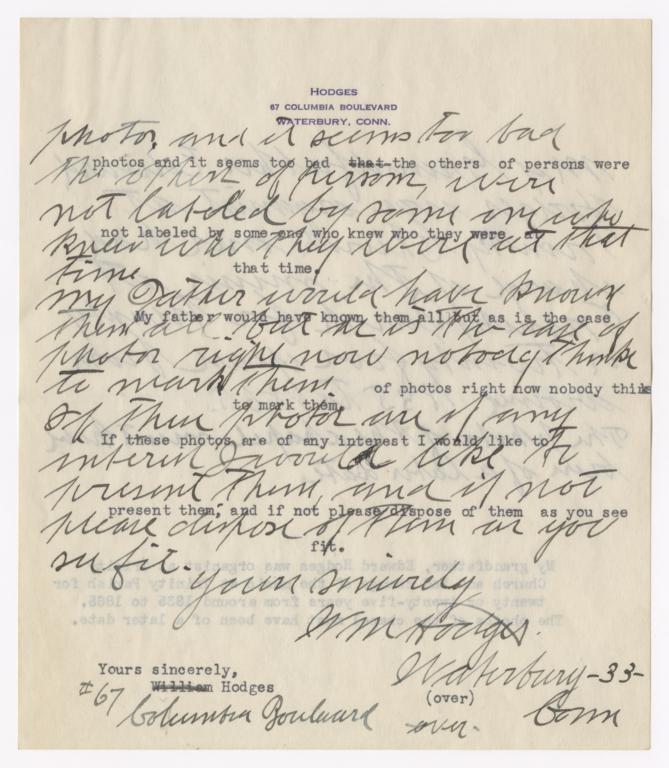 HODGES
67 COLUMBIA BOULEVARD
WATERBURY, CONN.
photos, and it seems too bad
photos and it seems too bad that the others of persons were
the others of persons, were
not labeled by some one who
not labeled by some one who knew who they were at
knew who they were at that
time
that time.
My Father would have known
My father would have known them all but as is the case
them all but as is the case of
photos right now nobody thinks
to mark them.
of photos right now nobody thinks
to mark them.
If these photos are of any
If these photos are of any interest I would like to
interest I would like to
present them, and if not
present them, and if not please dispose of them as you see
please dispose of them as you
fit.
see fit.
Yours sincerely
Wm Hodges.
Yours sincerely,
Waterbury -33-
William Hodges
(over)
#67
Columbia Boulevard
over.
Conn
My grandfather, Edward Hodges was organist
Church
twenty